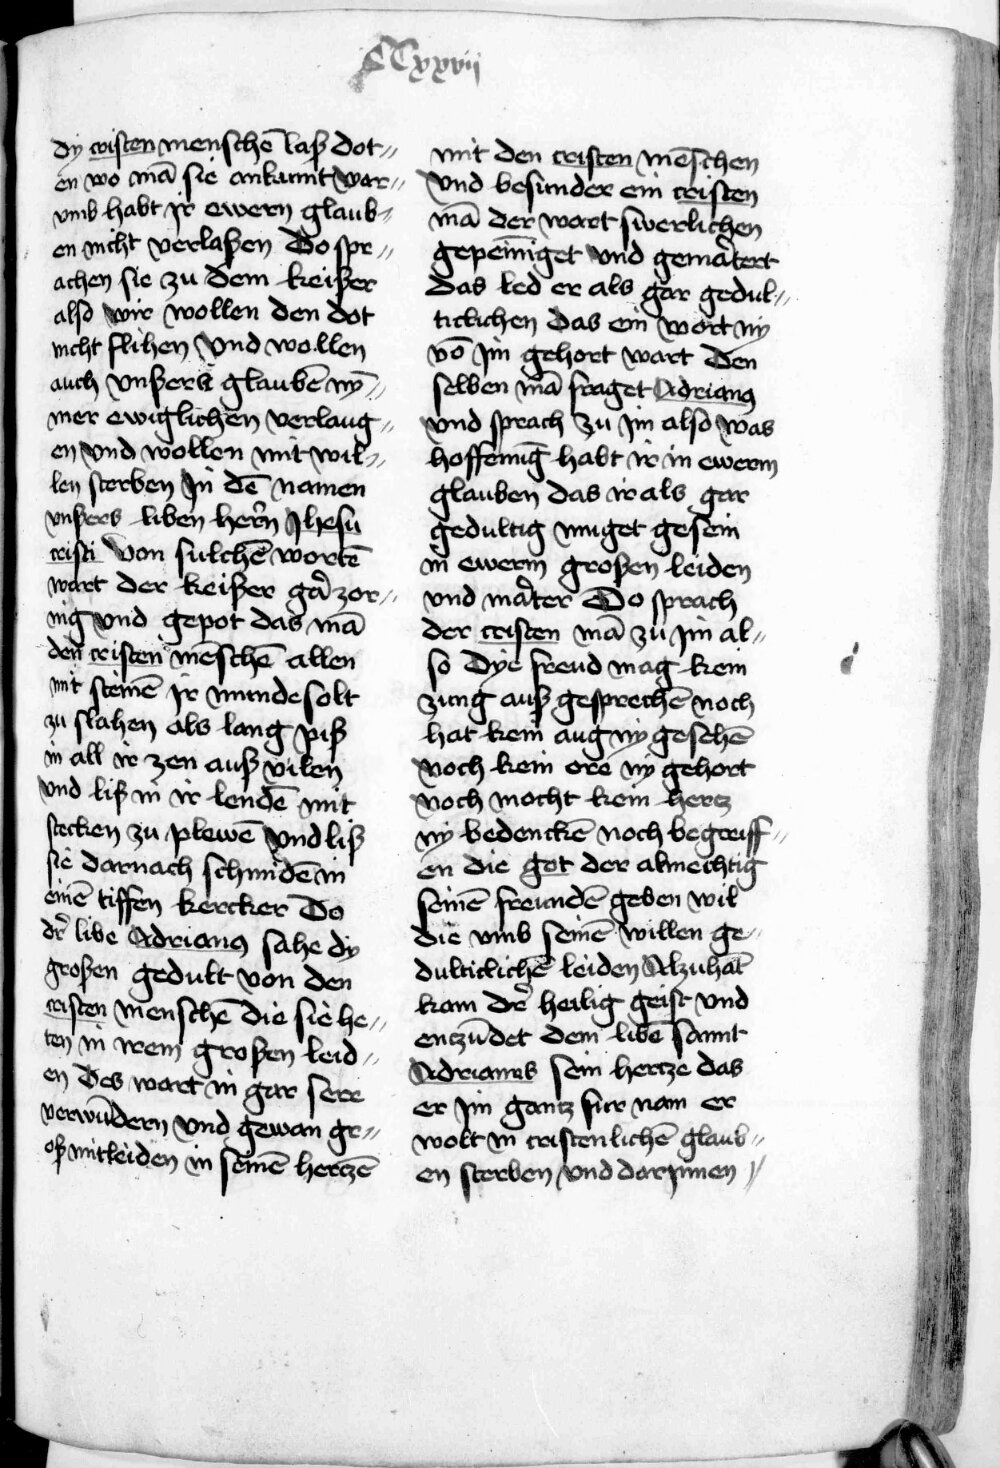 CCxxvii
dy cristen menschē laß dot⸗
en wo mā sie ankumt war⸗
vmb habt jr ewern glaub⸗
en nicht verlaßen Do spr⸗
achen sie zu dem keißer
also wir wollen den dot
nicht flihen Vnd wollen
auch vnßern glaubē nȳ⸗
mer ewiglichen verlaug⸗
en vnd wollen mit wil⸗
len sterben Jn dē namen
vnßers liben hern̄ Jhesu
cristi Von sulchē wortē
wart der keißer gar zor⸗
nig vnd gepot das mā
den cristen mēschē allen
mit steinē jr munde solt
zu slahen als lang piß
in all ir zen auß vilen
vnd liß in ir lendē mit
stecken zu plewē Vnd liß
sie darnach schmidē in
einē tiffen kercker Do
dr̄ libe Adrianus sahe dy
großen gedult von den
cristen menschē die sie he⸗
ten in irem großen leid⸗
en Des wart in gar sere
verwūdern vnd gewan gr⸗
oß mitleiden in seinē hertzē
mit den cristen mēschen
Vnd besunder ein cristen
mā der wart swerlichen
gepeiniget vnd gemartert
das led er als gar gedul⸗
ticlichen das ein wort ny
vō jm gehort wart Den
selben mā fraget Adrianus
vnd sprach zu jm also was
hoffenūg habt ir in ewerm
glauben das ir als gar
gedultig muget gesein
in ewerm großen leiden
vnd marter Do sprach
der cristen mā zu jm al⸗
so Dye freud mag kein
zung auß gesprechē noch
hat kein aug ny gesehē
noch kein ore ny gehort
noch mocht kein hertz
ny bedenckē noch begreiff⸗
en die got der almechtig
seinē freundē geben wil
die vmb seinē willen ge⸗
dulticlichē leiden Alzuhāt
kam dr̄ heilig geist vnd
entzūdet dem libē sannt
Adrianus sein hertze das
er jm gantz fur nam er
wolt in cristenlichē glaub⸗
en sterben vnd darjnnen